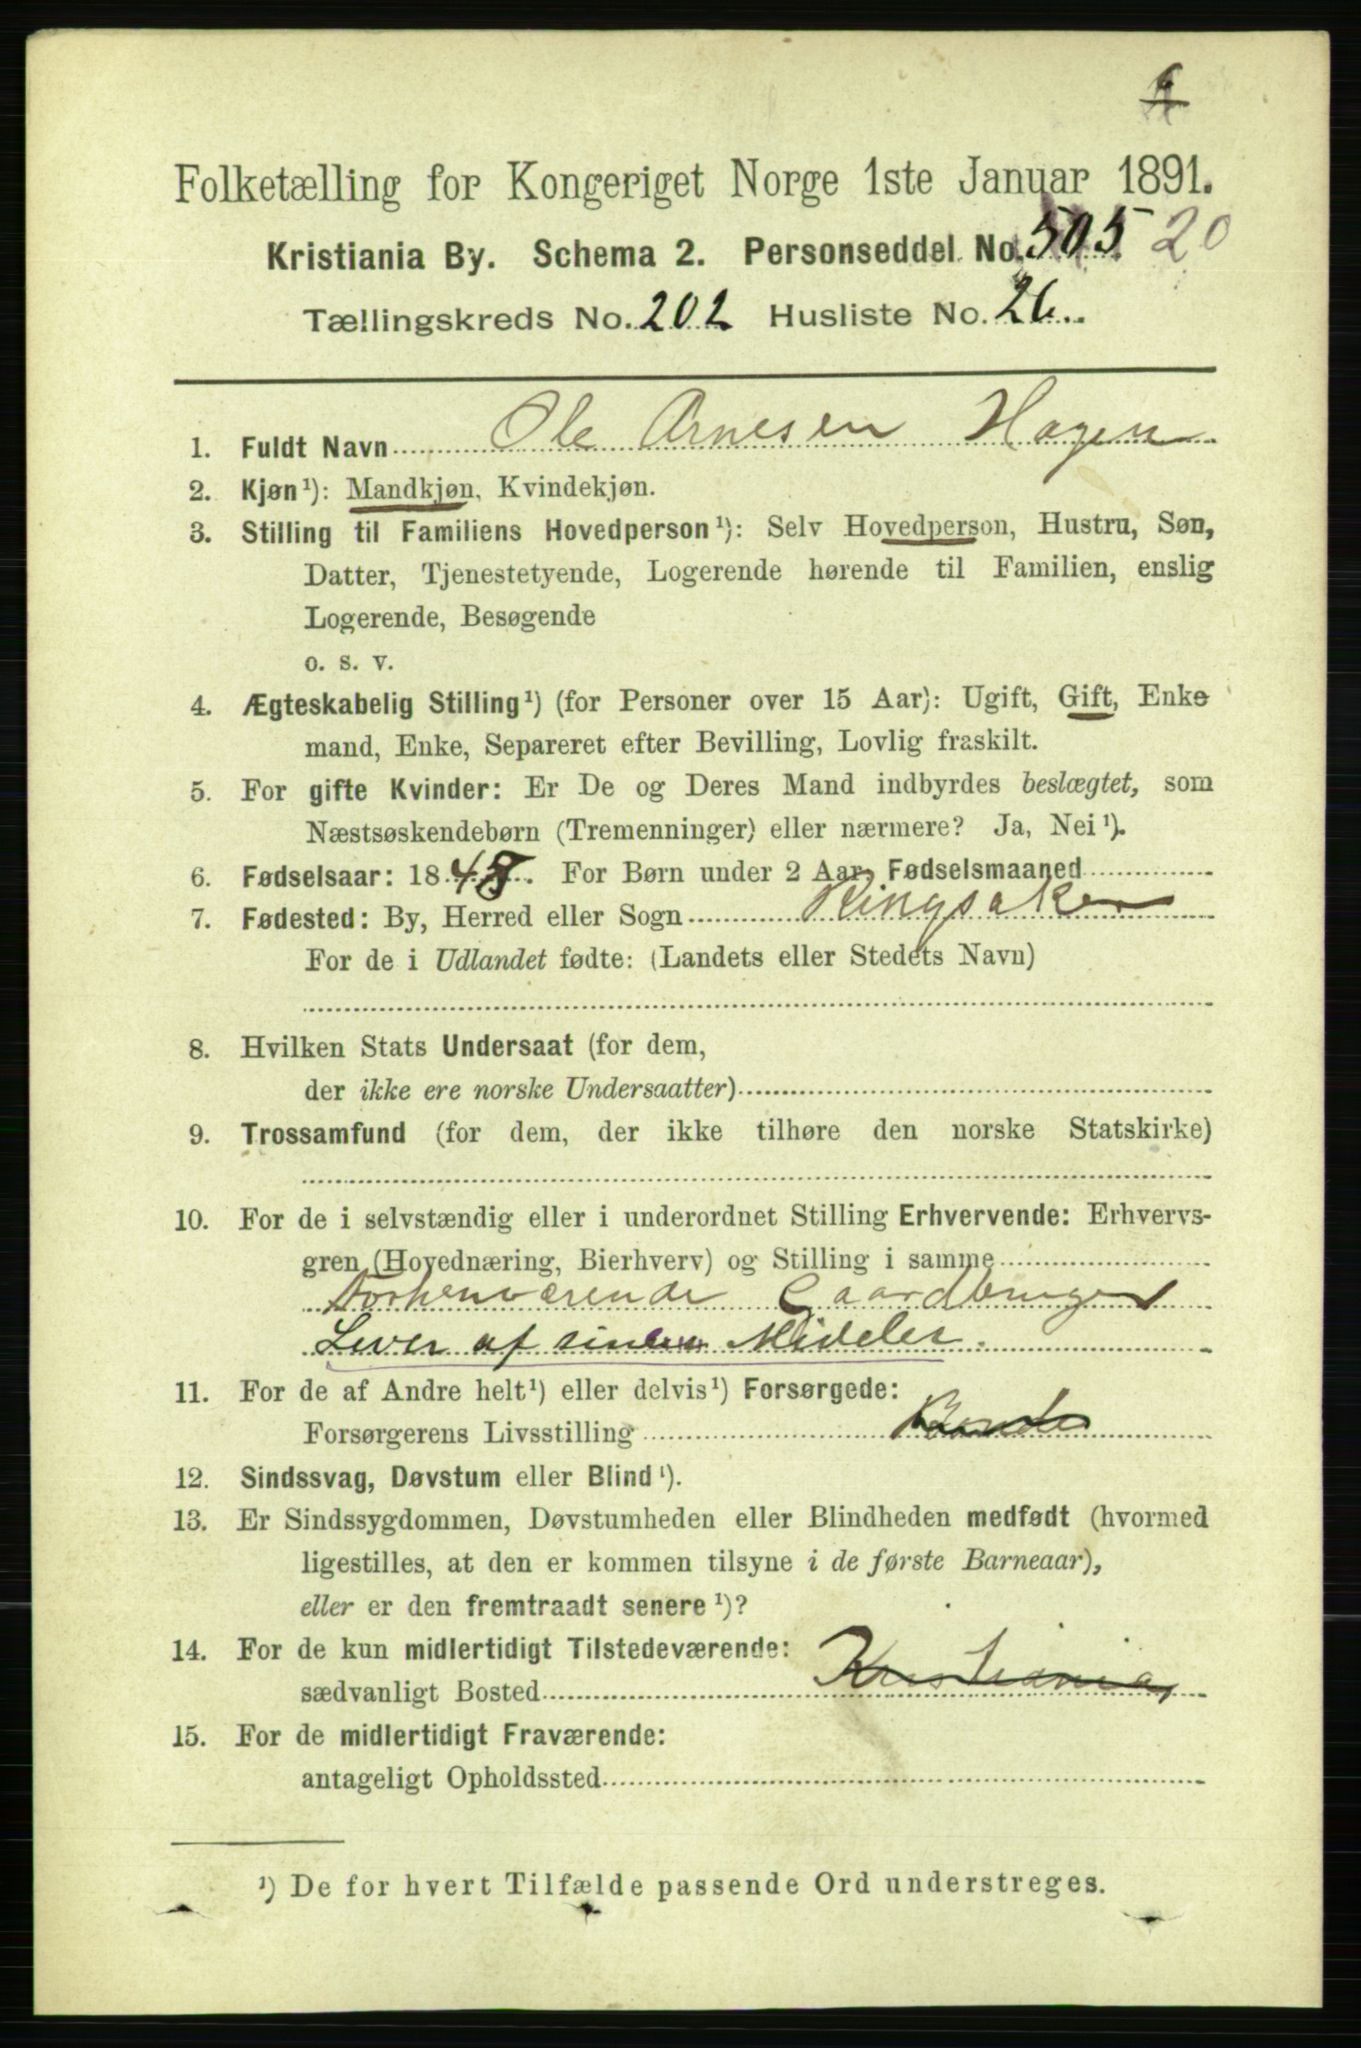 Folketælling for Kongeriget Norge 1ste Januar 1891.
Kristiania By. Schema 2. Personseddel No. 505. 20
Tællingskreds No. 202 Husliste No. 26.
1. Fuldt Navn Ole Arnesen Hagen
2. Kjøn¹): Mandkjøn, Kvindekjøn.
3. Stilling til Familiens Hovedperson¹): Selv Hovedperson, Hustru, Søn,
Datter, Tjenestetyende, Logerende hørende til Familien, enslig
Logerende, Besøgende
o. s. v.
4. Ægteskabelig Stilling¹) (for Personer over 15 Aar): Ugift, Gift, Enke
mand, Enke, Separeret efter Bevilling, Lovlig fraskilt.
5. For gifte Kvinder: Er De og Deres Mand indbyrdes beslægtet, som
Næstsøskendebørn (Tremenninger) eller nærmere? Ja, Nei¹).
6. Fødselsaar: 1848. For Børn under 2 Aar, Fødselsmaaned
7. Fødested: By, Herred eller Sogn Ringsaker
For de i Udlandet fødte: (Landets eller Stedets Navn)
8. Hvilken Stats Undersaat (for dem,
der ikke ere norske Undersaatter)
9. Trossamfund (for dem, der ikke tilhøre den norske Statskirke)
10. For de i selvstændig eller i underordnet Stilling Erhvervende: Erhvervs-
gren (Hovednæring, Bierhverv) og Stilling i samme
Forhenværende Gaardbruger
Lever af sine Midler.
11. For de af Andre helt¹) eller delvis¹) Forsørgede:
Forsørgerens Livsstilling Bonde
12. Sindssvag, Døvstum eller Blind¹).
13. Er Sindssygdommen, Døvstumheden eller Blindheden medfødt (hvormed
ligestilles, at den er kommen tilsyne i de første Barneaar),
eller er den fremtraadt senere¹)?
14. For de kun midlertidigt Tilstedeværende:
sædvanligt Bosted Kristiania
15. For de midlertidigt Fraværende:
antageligt Opholdssted
¹) De for hvert Tilfælde passende Ord understreges.